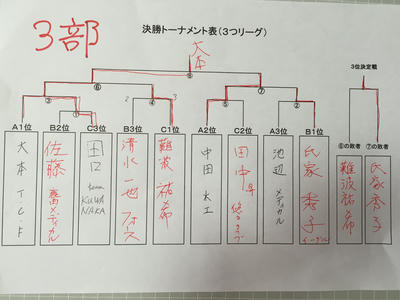 3部
決勝トーナメント表(3つリーグ)
大本
3位決定戦
⑥
⑤
⑦
③
①
④
②
2
3
⑥の敗者
⑦の敗者
A1位
B2位
C3位
B3位
C1位
A2位
C2位
A3位
B1位
大本 T.C.F
佐藤
メディカル
田口 team KUWANAKA
清水 一也 フォース
難波 祐希
中田
田中
池辺 メディカル
氏家 秀子 イーグル
難波祐希
氏家秀子